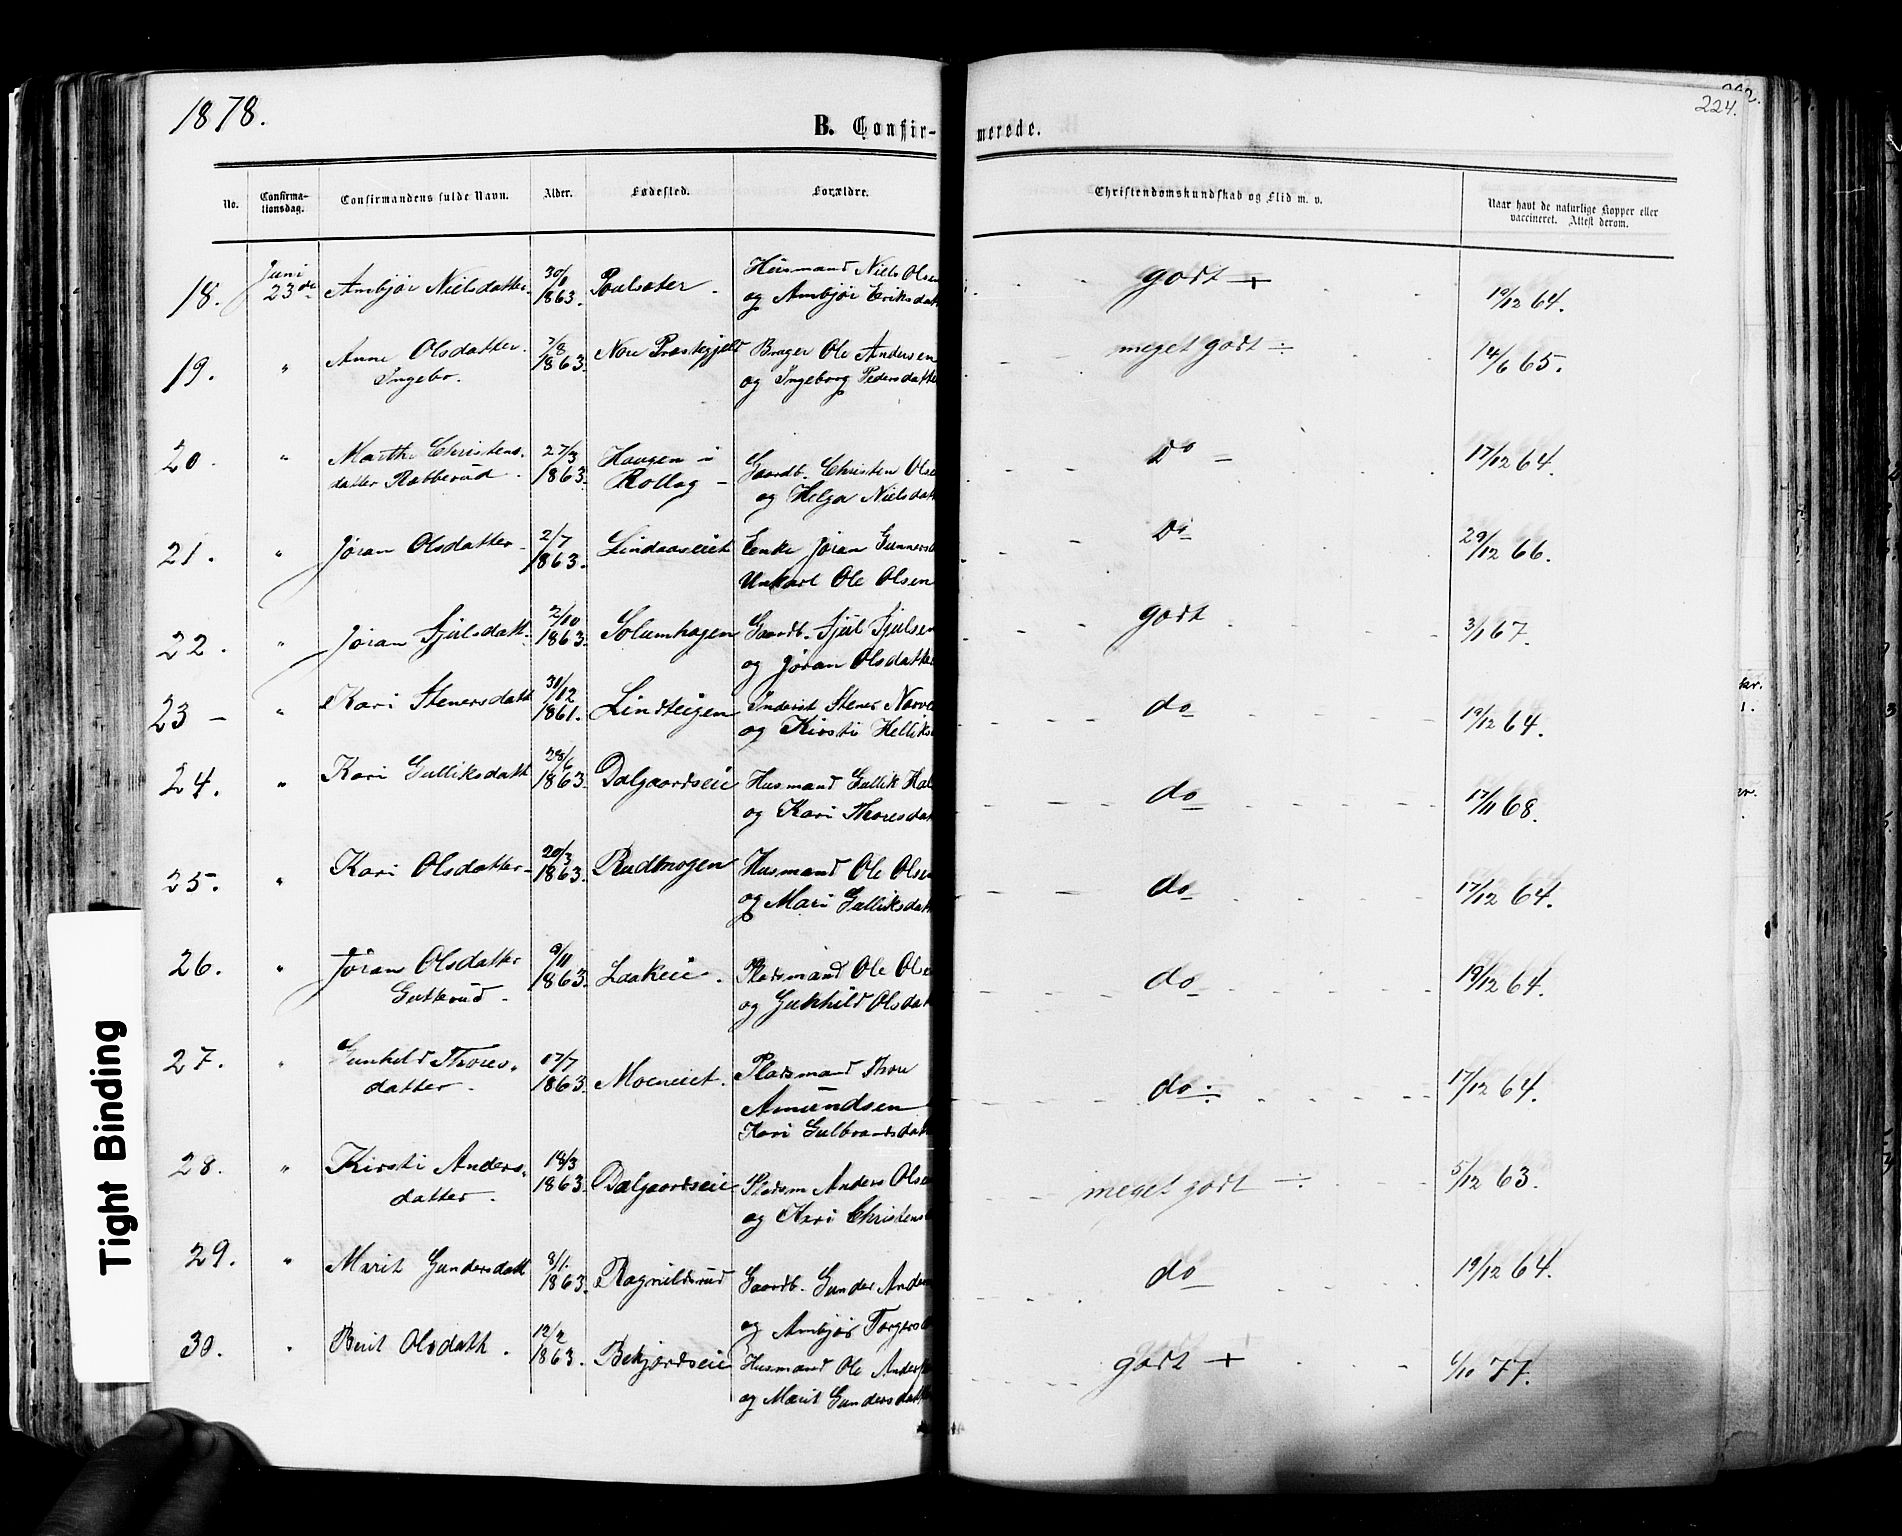 1878.
224.
B. Confir-merede.
No. Confirma-tionsdag. Confirmandens fulde Navn. Alder. Fødested. Forældre. Christendomskundskab og Flid m. v. Naar havt de naturlige Kopper eller vaccineret. Attest derom.
Juni 30/1
18. 23de Ambjør Nielsdatter 1863. Poulsæter. Husmand Niels Olsen godt + 19/12 64.
og Ambjør Eriksdatt
19. " Anne Olsdatter 7/8 1863. Nore Præstegjeld Bruger Ole Andersen meget godt ÷ 14/6 65.
Ingebo. og Ingeborg Pedersdatte
20. " Marthe Christens- 27/3 Haugen i Gaardb. Christen Olse Do 17/12 64.
datter Rabberud. 1863. Rollag - og Helga Nielsdat
21. " Jøran Olsdatter 2/7 1863. Lindaaseiet Enke Jøran Gunners Do 29/12 66.
Unkarl Ole Olsen
22. " Jøran Fjulsdatt. 2/10 1863. Solumhagen Gaardb. Fjul Fjulsen godt 3/1 67.
og Jøran Olsdatte
23 - " Kari Stenersdatt 31/12 1861. Lindteigen Inderst Stener Narve do 19/12 64.
og Kirsti Helliks
24. " Kari Gulliksdatt 28/6 1863. Dalgaardseie Husmand Gullik Hal do 17/11 68.
og Kari Thoresdat
25. " Kari Olsdatter 20/3 1863. Rudmogen Husmand Ole Olsen do 17/12 64.
og Mari Gulliksdatt
26. " Jøran Olsdatter 9/11 1863. Laakeie. Pladsmand Ole Olse do 19/12 64.
Gutterud. og Gunhild Olsdat
27. " Gunhild Thores- 17/7 Moeneiet. Pladsmand Thore do ÷ 17/12 64.
datter. 1863. Amundsen
Kari Gulbrandsdatt
28. " Kirsti Anders- 18/3 Dalgaardseie Pladsm Anders Olse meget godt ÷ 5/12 63.
datter. 1863. og Kari Christens
29. " Marit Gundersdatt 8/1. 1863. Ragnildsrud Gaardb. Gunder Anders do 19/12 64.
og Ambjør Torgers
30. " Berit Olsdatt. 12/2 1863. Bekjordseie Husmand Ole Anders godt + 6/10 77.
og Marit Gundersdatt
Tight Binding